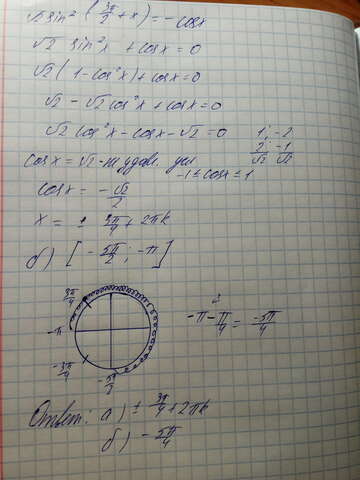 √2 sin²(3π/2 + x) = - cosx
√2 sin²x + cosx = 0
√2 (1 - cos²x) + cosx = 0
√2 - √2 cos²x + cosx = 0
√2 cos²x - cosx - √2 = 0 1; -2
2/√2; -1/√2
cosx = √2 - не удов. усл -1 ≤ cosx ≤ 1
cosx = - √2/2
x = ± 3π/4 + 2πk
б) [ - 5π/2 ; -π ]
3π/4
-π - π/4 = -5π/4
-π
-3π/4
-5π/2
Ответ: а) ± 3π/4 + 2πk
б) - 5π/4